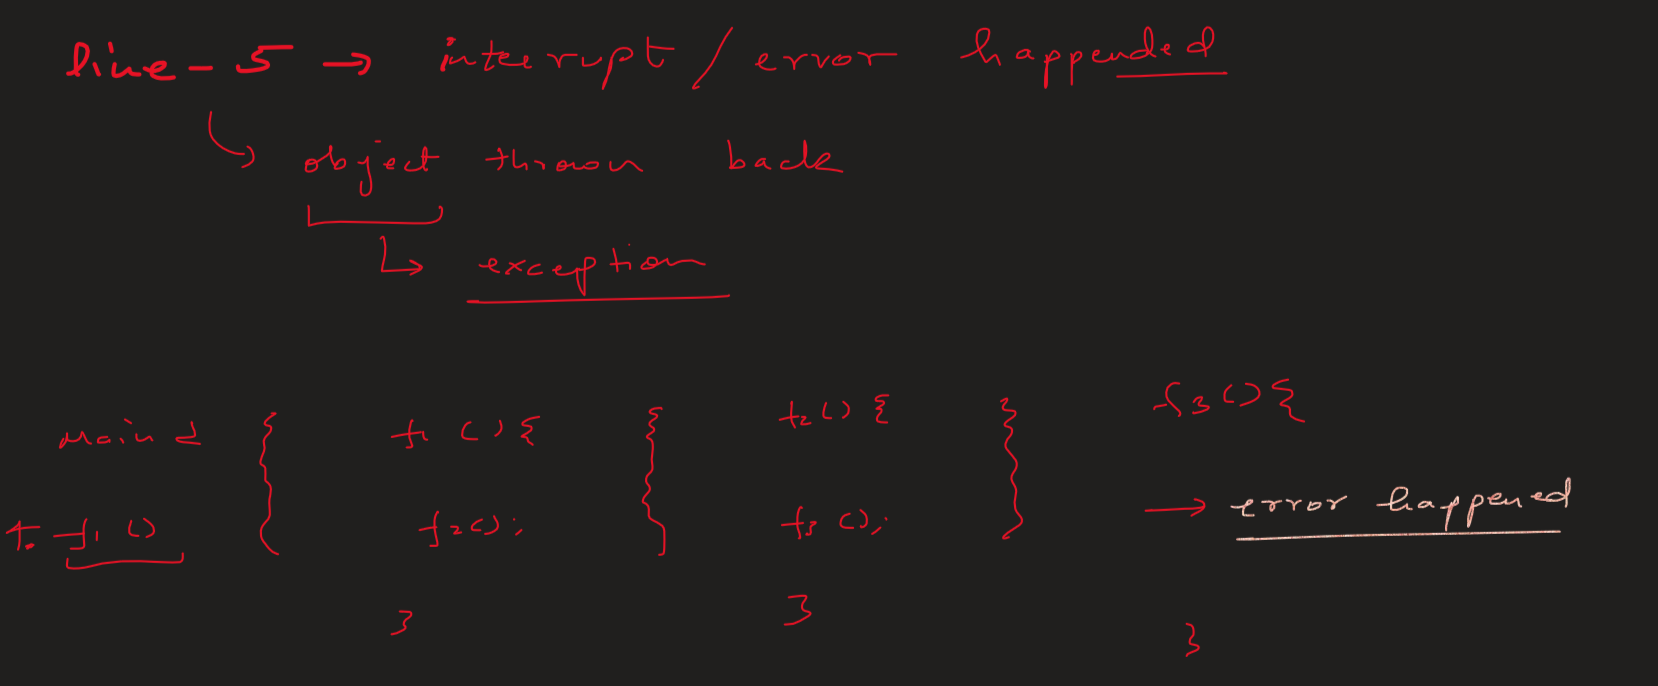 line - 5 → interrupt / error happended
object thrown back
exception
main { f1 () { f2 () { f3 () {
f1 () f2 (); f3 (); → error happened
} } }